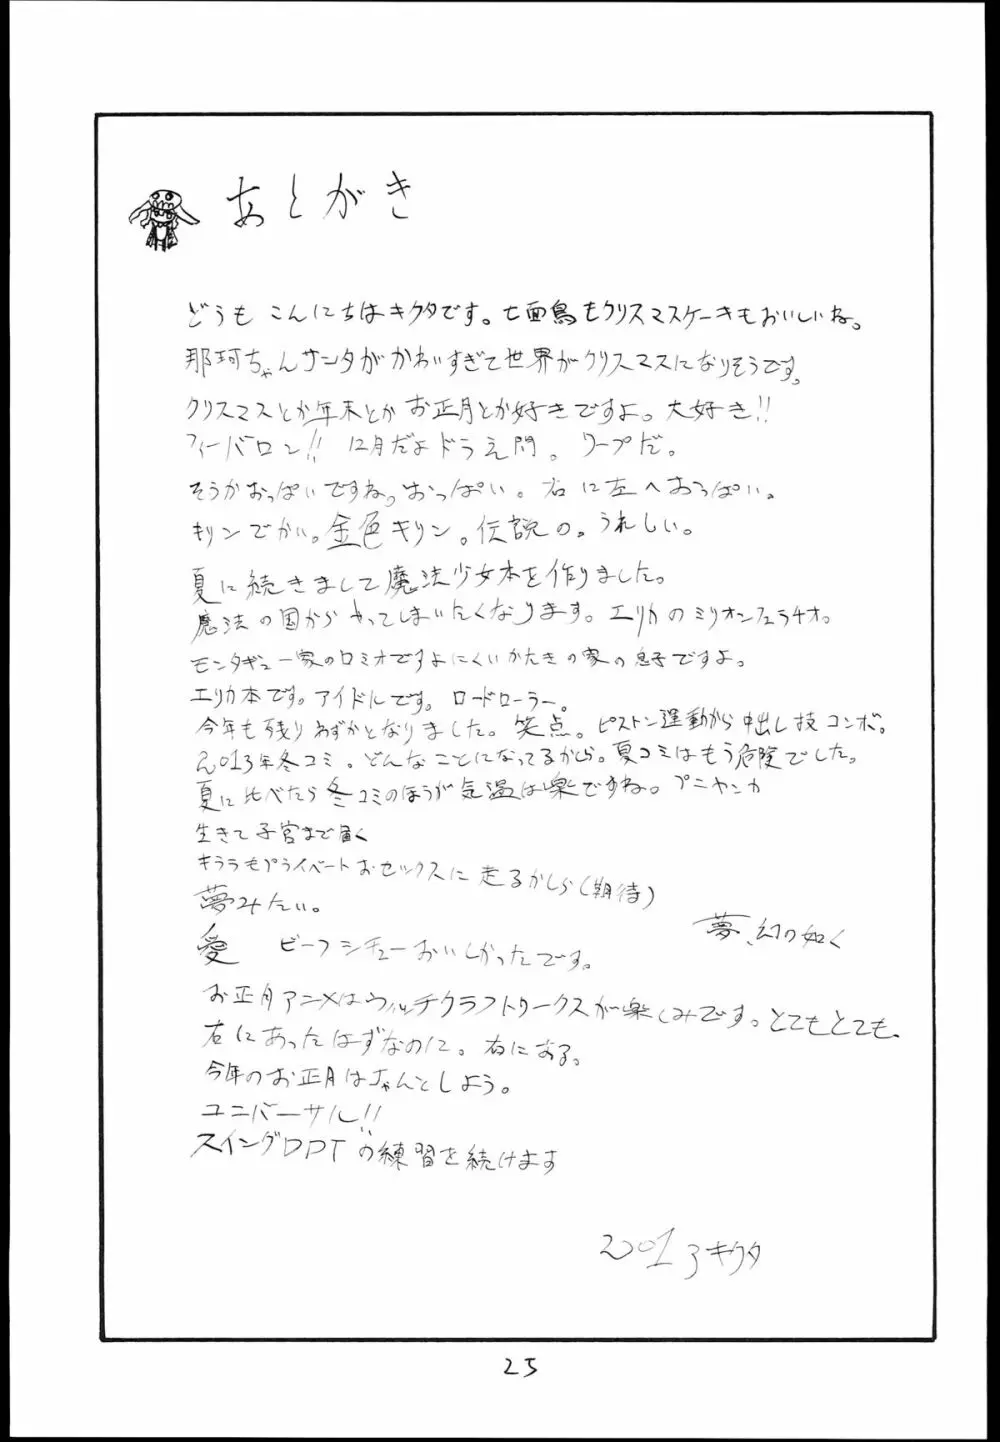 あとがき
どうも こんにちはキクタです。七面鳥もクリスマスケーキもおいしいね。
那珂ちゃんサンタがかわいすぎて世界がクリスマスになりそうです。
クリスマスとか年末とか お正月とか好きですよ。大好き!!
フィーバロン!! 12月だよドラえ門。ワープだ。
そうかおっぱいですね。おっぱい。右に左へおっぱい。
キリンでかい。金色キリン。伝説の。うれしい。
夏に続きまして魔法少女本を作りました。
魔法の国からやってしまいたくなります。エリカのミリオンフェラチオ。
モンタギュー家のロミオですよにくいかたきの家の息子ですよ。
エリカ本です。アイドルです。ロードローラー。
今年も残りわずかとなりました。笑点。ピストン運動から中出し技コンボ。
2013年冬コミ。どんなことになってるかしら。夏コミはもう危険でした。
夏に比べたら冬コミのほうが気温は楽ですね。プニヤンカ
生きて子宮まで届く
キララもプライベートおセックスに走るかしら(期待)
夢みたい。
夢、幻の如く
愛 ビーフシチューおいしかったです。
お正月アニメはウィッチクラフトワークスが楽しみです。とてもとても、
右にあったはずなのに。右にある。
今年のお正月はちゃんとしよう。
ユニバーサル!!
スイングDDTの練習を続けます
2013 キクタ
25